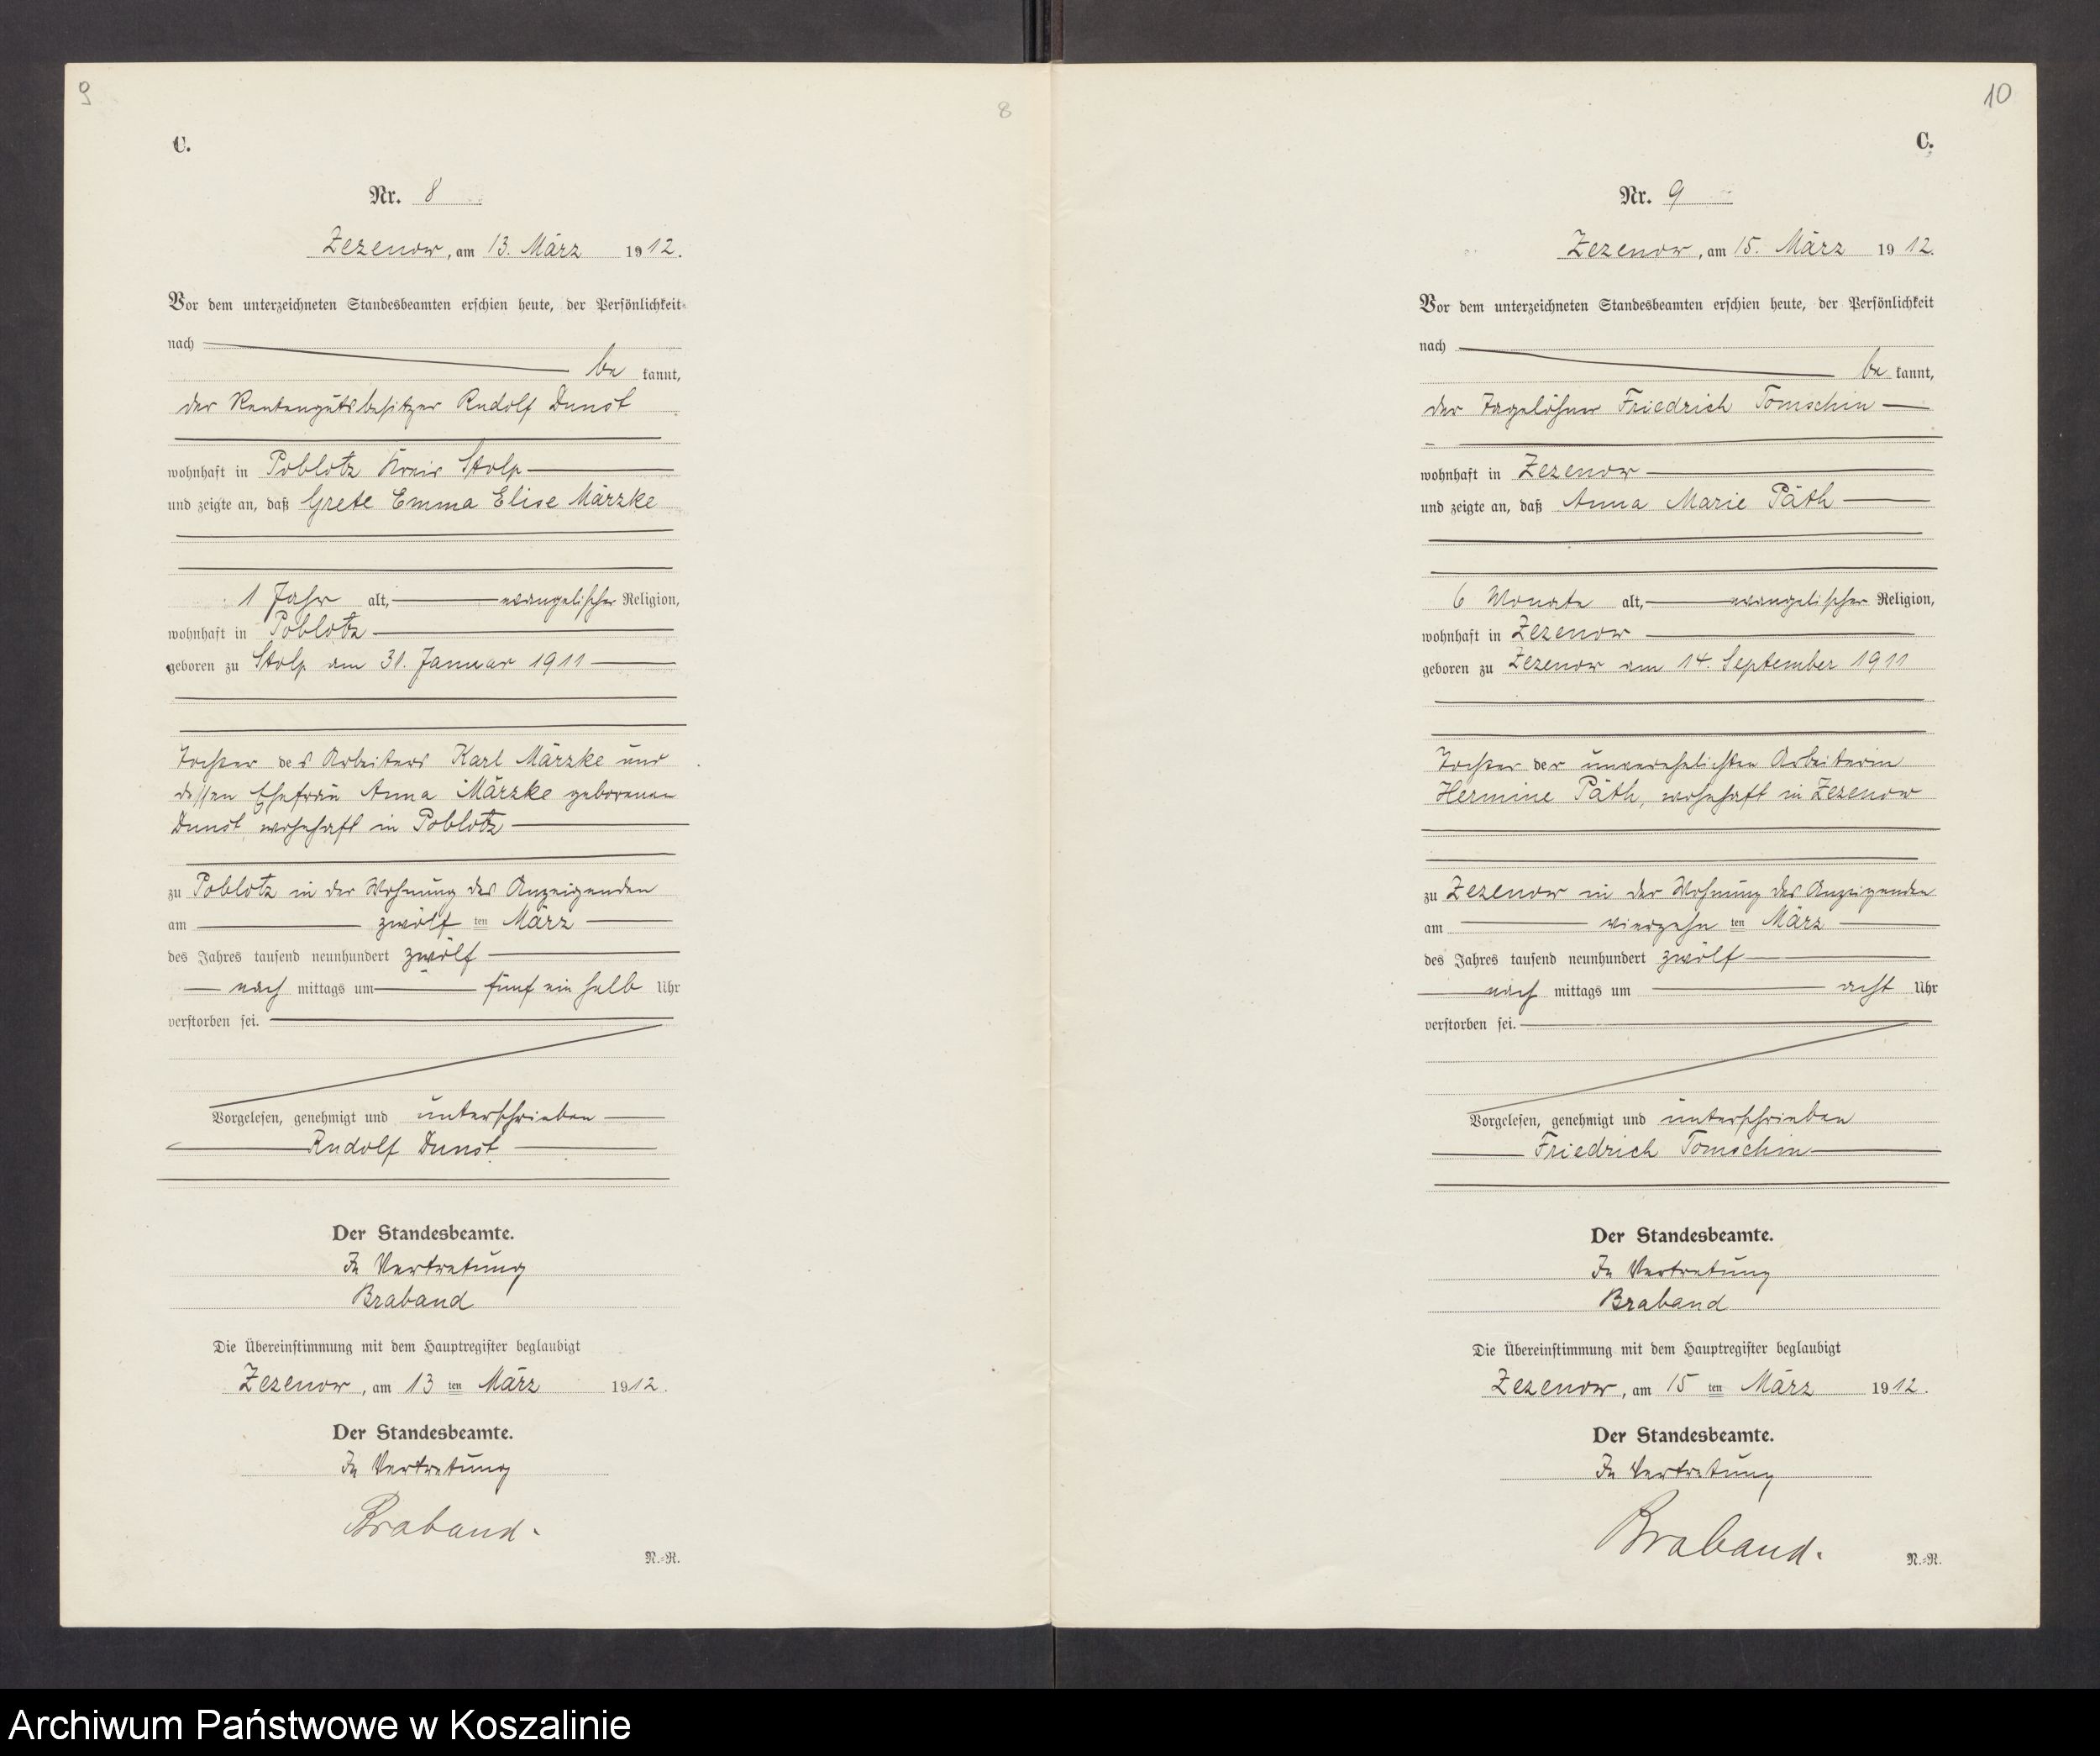 9
8
C.
Nr. 8
Zezenow, am 13. März 1912.
Vor dem unterzeichneten Standesbeamten erschien heute, der Persönlichkeit
nach
be kannt,
der Rentengutsbesitzer Rudolf Dunst
wohnhaft in Poblotz Kreis Stolp
und zeigte an, daß Grete Emma Elise Märzke
1 Jahr alt, evangelischer Religion,
wohnhaft in Poblotz
geboren zu Stolp am 31. Januar 1911
Tochter des Arbeiters Karl Märzke und
dessen Ehefrau Anna Märzke geborenen
Dunst, wohnhaft in Poblotz
zu Poblotz in der Wohnung des Anzeigenden
am zwölf ten März
des Jahres tausend neunhundert zwölf
nach mittags um fünf ein halb Uhr
verstorben sei.
Vorgelesen, genehmigt und unterschrieben
Rudolf Dunst
Der Standesbeamte.
In Vertretung
Braband
Die Übereinstimmung mit dem Hauptregister beglaubigt
Zezenow, am 13 ten März 1912.
Der Standesbeamte.
In Vertretung
Braband.
N.-R.
10
C.
Nr. 9
Zezenow, am 15. März 1912.
Vor dem unterzeichneten Standesbeamten erschien heute, der Persönlichkeit
nach
be kannt,
der Tagelöhner Friedrich Tomschin
wohnhaft in Zezenow
und zeigte an, daß Anna Marie Päth
6 Monate alt, evangelischer Religion,
wohnhaft in Zezenow
geboren zu Zezenow am 14. September 1911
Tochter der unverehelichten Arbeiterin
Hermine Päth, wohnhaft in Zezenow
zu Zezenow in der Wohnung des Anzeigenden
am vierzehn ten März
des Jahres tausend neunhundert zwölf
nach mittags um acht Uhr
verstorben sei.
Vorgelesen, genehmigt und unterschrieben
Friedrich Tomschin
Der Standesbeamte.
In Vertretung
Braband
Die Übereinstimmung mit dem Hauptregister beglaubigt
Zezenow, am 15 ten März 1912.
Der Standesbeamte.
In Vertretung
Braband.
N.-R.
Archiwum Państwowe w Koszalinie